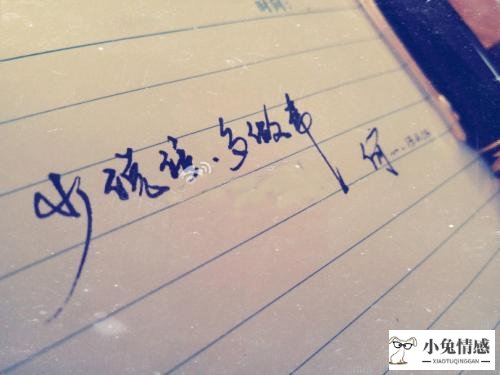 时间:
少说话.多做事
何
小兔情感
XIAOTUQINGGAN